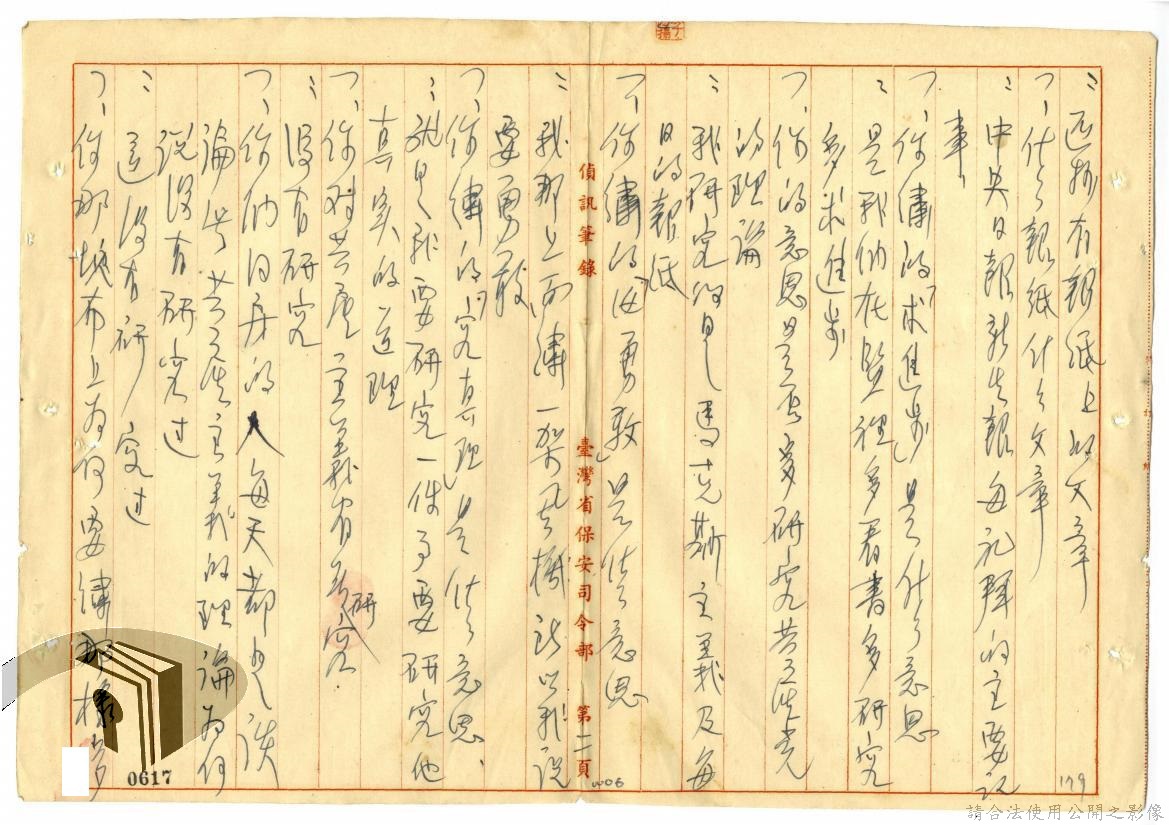 ：还抄有報紙上的文章
問、什么報紙什么文章
：中央日報新生報每礼拜的主要記
事
問、你繡的「求進步」是什么意思
：是我們在監裡多看書多研究
多求進步
問、你的意思是否多研究共產党
的理論
：我研究的是馬克斯主義及每
日的報紙
問、你繡的「要勇敢」是什么意思
：我那上面繡一架飛機所以我說
要勇敢
問、你繡的「究真理」是什么意思、
：就是我要研究一件事要研究他
真实的道理
問、你对共產主義有否研究
：沒有研究
問、你們同房的人每天都是談
論共產主義的理論為何
說沒有研究过
：还沒有研究过
問、你那塊布上為何要繡那樣多
偵訊筆錄
臺灣省保安司令部
第二頁
0617
179
請合法使用公開之影像